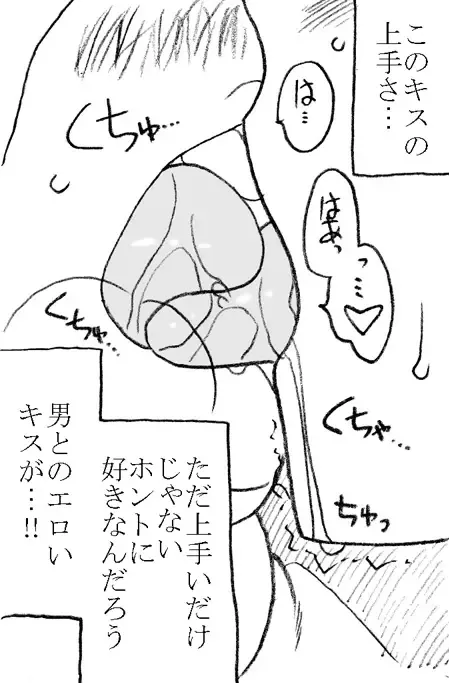 このキスの
上手さ…
は…
はあっ
っ…♡
くちゅ…
くちゅ…
くちゃ…
ちゅっ
ただ上手いだけ
じゃない
ホントに
好きなんだろう
男とのエロい
キスが…!!